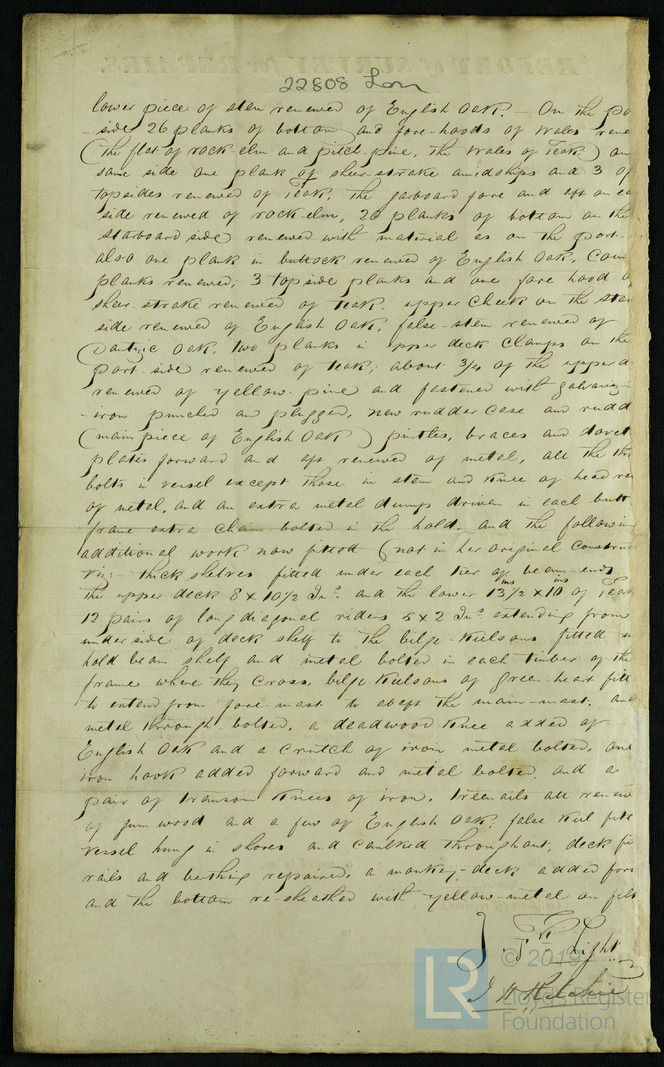 REPORT of SURVEY for REPAIRS.
22808 Lon
lower piece of stem renewed of English Oak. - On the po
side 26 planks of bottom and fore-hoods of wales rene
(the flat of rock-elm and pitch-pine, the wales of Teak) on
same side one plank of sheer-strake amidships and 3 of
topsides renewed of Teak, the garboard fore and aft on ea
side renewed of rock-elm, 26 planks of bottom on the
starboard side renewed with material as on the port
also one plank in buttock renewed of English Oak,
planks renewed; 3 topside planks and one fore hood o
sheer-strake renewed of teak, upper cheek on the star
side renewed of English Oak, false-stem renewed of
Dantzic Oak, two planks in upper deck clamps on the
port-side renewed of teak; about 3/4 of the upper d
renewed of yellow-pine and fastened with galvaniz-
-iron punched an plugged, new rudder case and rudd
(main piece of English Oak) pintles, braces and dovet
plates forward and aft renewed of metal, all the thr
bolts in vessel except those in stem and knee of head re
of metal, and an extra metal dump driven in each butt
frame extra chain bolted in the hold, and the followin
additional work now fitted (not in her original constru
Viz: thick shelves fitted under each tier of beam-ends
the upper deck 8 x 10 1/2 Ins. and the lower 13 1/2 ins x 10 ins of Teak
12 pairs of long diagonal riders 5 x 2 Ins extending from
underside of deck shelf to the bilge-keelsons fitted
hold beam shelf and metal bolted in each timber of the
frame where they cross, bilge keelsons of green-heart fitt
to extend from fore-mast to abaft the main-mast, and
metal through bolted, a deadwood knee added of
English Oak and a crutch of iron metal bolted, one
iron hook added forward and metal bolted, and a
pair of transom knees of iron. treenails all renew
of gum wood and a few of English Oak; false keel fitt
vessel hung in shores and caulked throughout, deck fi
rails and berthing repaired, a monkey-deck added for
and the bottom re-sheathed with yellow-metal on felt
Light
J H Ritchie
LR
© 2019
Lloyd's Register
Foundation